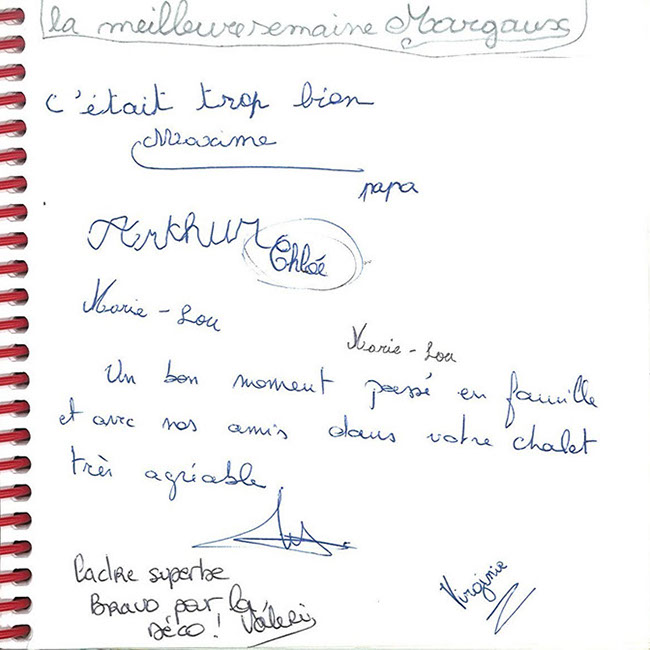 la meilleure semaine Margaux
C'était trop bien
Maxime
papa
Arthur
Chloé
Marie-Lou
Marie-Lou
Un bon moment passé en famille
et avec nos amis dans votre chalet
très agréable
Cadre superbe
Bravo pour la
Déco ! Valérie
Virginie